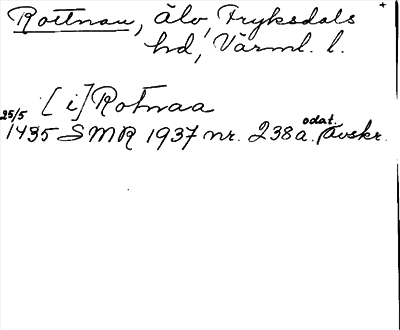 Rottnan, älv, Fryksdals
hd, Värml. l.
[i] Rotnaa
25/5 1435 SMR 1937 nr. 238a. odat. Avskr.